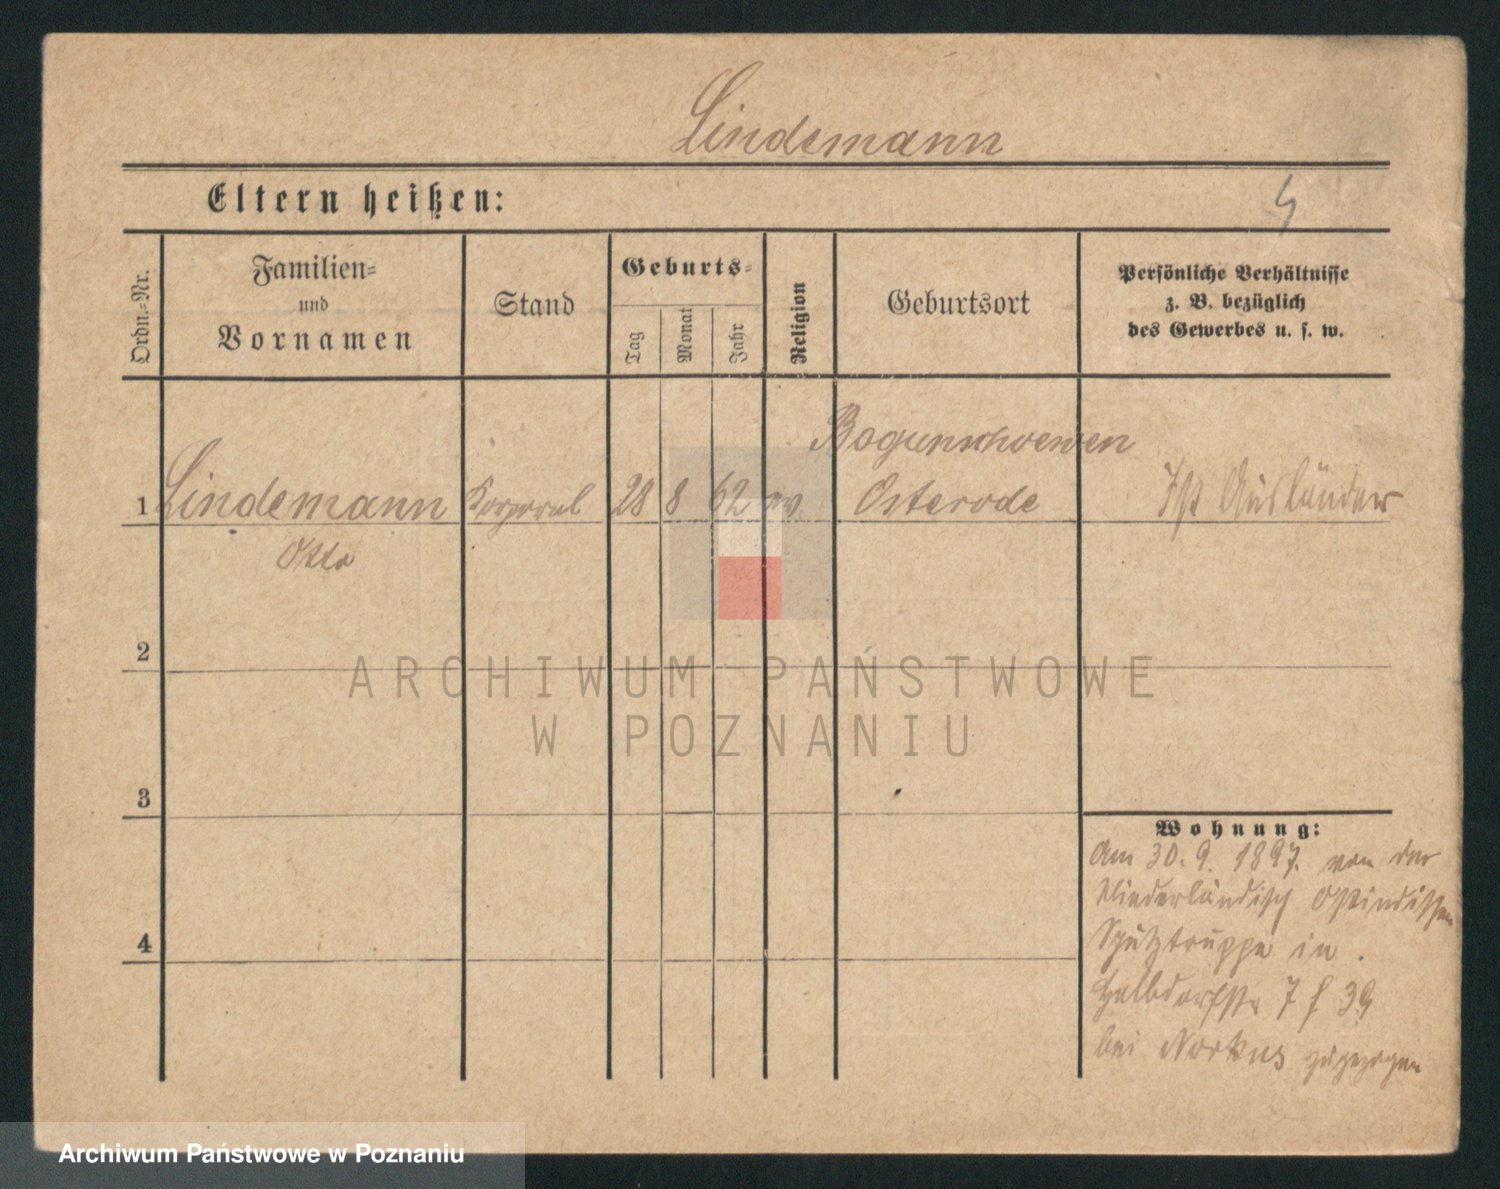 Lindemann
Eltern heißen:
4
Ordn.-Nr.
Familien-
und
Vornamen
Stand
Geburts-
Tag
Monat
Jahr
Religion
Geburtsort
Persönliche Verhältnisse
z. B. bezüglich
des Gewerbes u. s. w.
Bogunschoewen
1 Lindemann Korporal 28 8 62 ev. Osterode Ist Ausländer
Otto
2
ARCHIWUM PAŃSTWOWE
W POZNANIU
3
Wohnung:
Am 30. 9. 1897. von der
Niederländisch Ostindischen
Schutztruppe in
Halbdorfstr 7 f 39
bei Norkus zugezogen
4
Archiwum Państwowe w Poznaniu